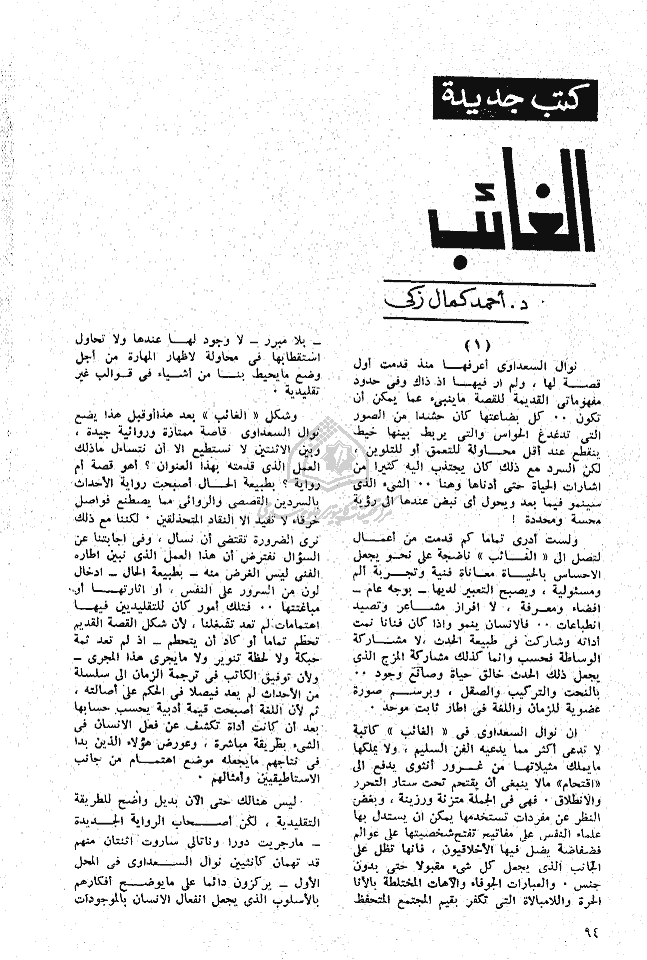 كتب جديدة
الغائب
د. أحمد كمال زكى
(١)
نوال السعداوى أعرفها منذ قدمت أول
قصة لها ، ولم أر فيها اذ ذاك وفى حدود
مفهوماتى القديمة للقصة ماينبىء عما يمكن أن
تكون ٠٠ كل بضاعتها كان حشدا من الصور
التى تدغدغ الحواس والتى يربط بينها خيط
ينقطع عند أقل محاولة للتعمق أو للتلوين ،
لكن السرد مع ذلك كان يجتذب اليه كثيرا من
اشارات الحياة حتى أدناها وهنا ٠٠ الشىء الذى
سينمو فيما بعد ويحول أى نبض عندها الى رؤية
محسة ومحددة !
ولست أدرى تماما كم قدمت من أعمال
لتصل الى « الغائب » ناضجة على نحو يجعل
الاحساس بالحياة معاناة فنية وتجربة ألم
ومسئولية ، ويصبح التعبير لديها ـ بوجه عام ـ
افضاء ومعرفة ، لا افراز مشاعر وتصيد
انطباعات ٠٠ فالانسان ينمو واذا كان فنانا نمت
أداته وشاركت فى طبيعة الحدث ،لا مشاركة
الوساطة فحسب وانما كذلك مشاركة المزج الذى
يجعل ذلك الحدث خالق حياة وصانع وجود ٠٠
بالنحت والتركيب والصقل ، وبرسم صورة
عضوية للزمان واللغة فى اطار ثابت موحد ٠
ان نوال السعداوى فى « الغائب » كاتبة
لا تدعى أكثر مما يدعيه الفن السليم ، ولا يملكها
مايملك مثيلاتها من غرور أنثوى يدفع الى
«اقتحام» مالا ينبغى أن يقتحم تحت ستار التحرر
والانطلاق ٠ فهى فى الجملة متزنة ورزينة ، وبغض
النظر عن مفردات تستخدمها يمكن ان يستدل بها
علماء النفس على مفاتيح تفتح شخصيتها على عوالم
فضفاضة يضل فيها الأخلاقيون ، فانها تظل على
الجانب الذى يجعل كل شىء مقبولا حتى بدون
جنس ٠ والعبارات الجوفاء والآهات المختلطة بالأنا
الحرة واللامبالاة التى تكفر بقيم المجتمع المتحفظ
ـ بلا مبرر ـ لا وجود لها عندها ولا تحاول
استقطابها فى محاولة لاظهار المهارة من أجل
وضع مايحيط بنا من أشياء فى قوالب غير
تقليدية ٠
وشكل « الغائب » بعد هذا وقبل هذا يضع
نوال السعداوى قاصة ممتازة وروائية جيدة ،
وبين الاثنتين لا نستطيع الا أن نتساءل ماذلك
العمل الذى قدمته بهذا العنوان ؟ أهو قصة أم
رواية ؟ بطبيعة الحال أصبحت رواية الأحداث
بالسردين القصصى والروائى مما يصطنع فواصل
خرقاء لا تفيد الا النقاد المتحذلقين ٠ لكننا مع ذلك
نرى الضرورة تقتضى أن نسأل ، وفى اجابتنا عن
السؤال نفترض أن هذا العمل الذى نبين اطاره
الفنى ليس الغرض منه ـ بطبيعة الحال ـ ادخال
لون من السرور على النفس ، أو اثارتها أو
مباغتتها ٠٠ فتلك أمور كان للتقليديين فيها
اهتمامات لم تعد تشغلنا ، لأن شكل القصة القديم
تحطم تماما أو كاد أن يتحطم ـ اذ لم تعد ثمة
حبكة ولا لحظة تنوير ولا مايجرى هذا المجرى ـ
ولأن توفيق الكاتب فى ترجمة الزمان الى سلسلة
من الأحداث لم يعد فيصلا فى الحكم على أصالته ،
ثم لأن اللغة أصبحت قيمة أدبية يحسب حسابها
بعد أن كانت أداة تكشف عن فعل الانسان فى
الشىء بطريقة مباشرة ، وعورض هؤلاء الذين بدا
فى نتاجهم مايجعله موضع اهتمام من جانب
الاستاطيقيين وأمثالهم ٠
ليس هنالك حتى الآن بديل واضح للطريقة
التقليدية ، لكن أصحاب الرواية الجديدة
ـ مارجريت دورا وناتالى ساروت اثنتان منهم
قد تهمان كأنثيين نوال السعداوى فى المحل
الأول ـ يركزون دائما على مايوضح أفكارهم
بالأسلوب الذى يجعل انفعال الانسان بالموجودات
٩٤